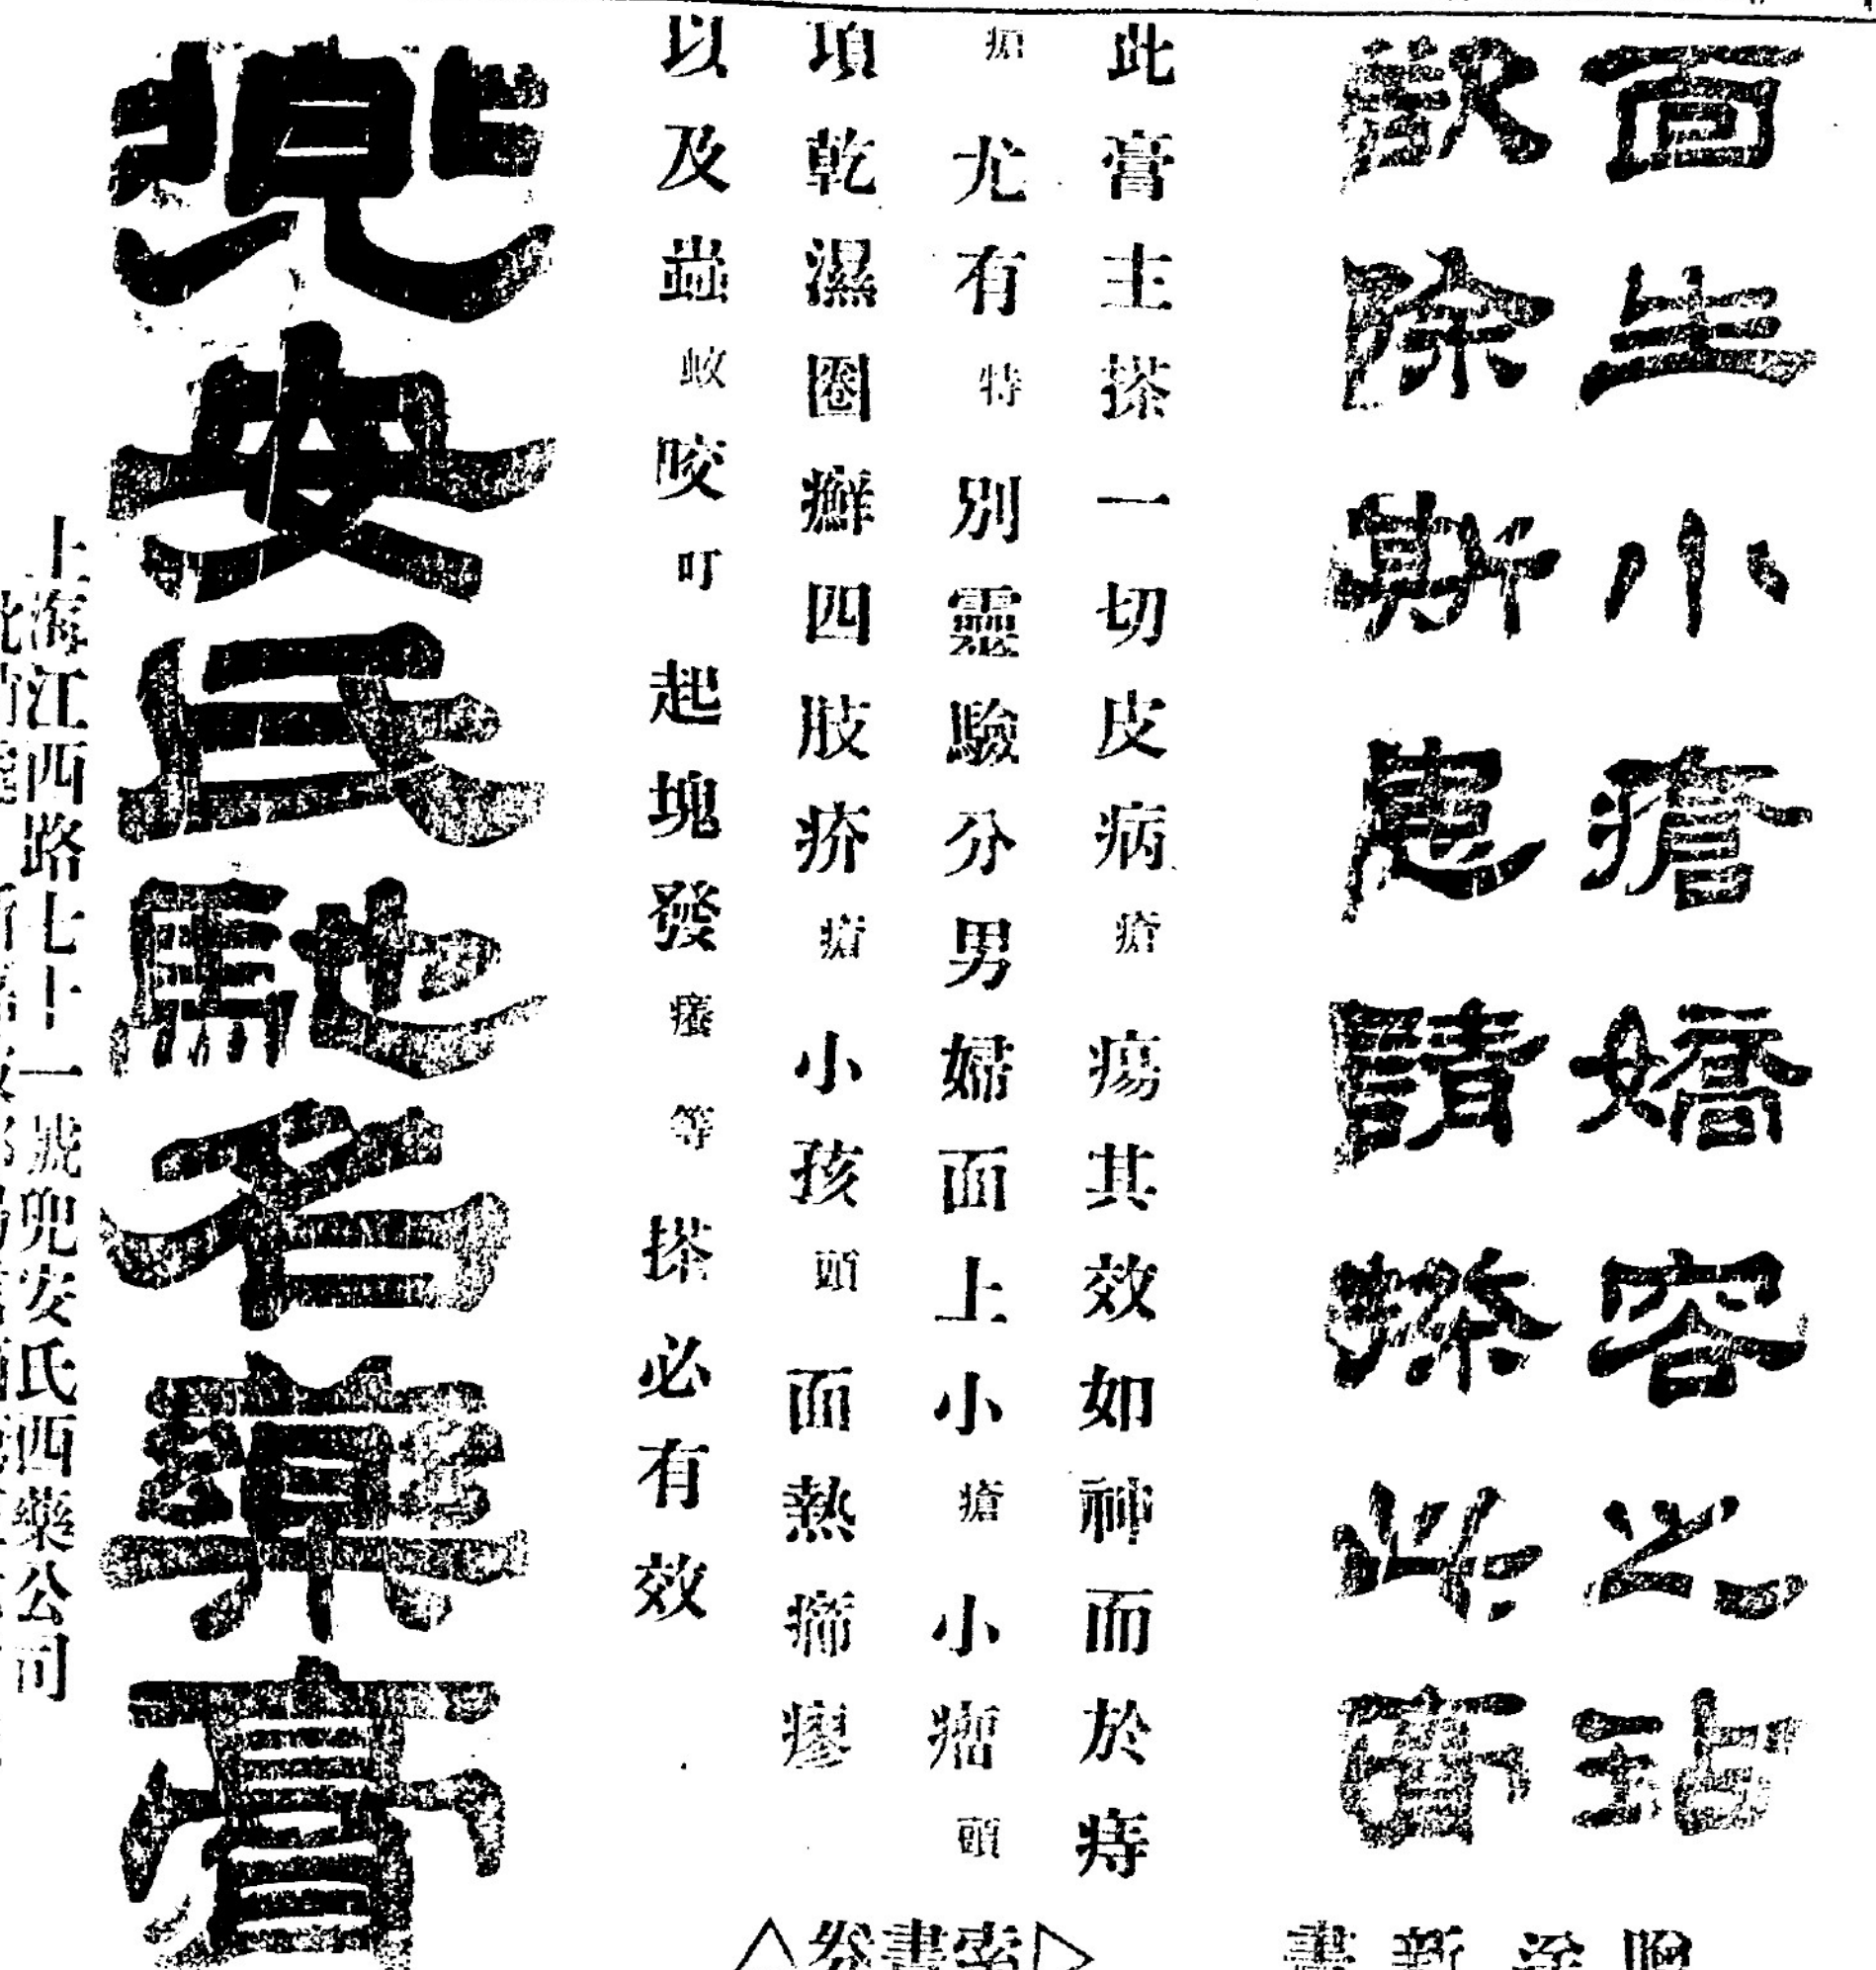 面生小瘡嬌容之玷
欲除斯患請搽此膏
此膏主搽一切皮病瘡瘍其效如神而於痔
瘡尤有特別靈驗分男婦面上小瘡小癤頭
項乾濕圈癬四肢疥瘡小孩頭面熱癤痱
以及蟲蚊咬叮起塊發癢等搽必有效
兜安氏馳名藥膏
上海江西路七十一號兜安氏西藥公司
索書券